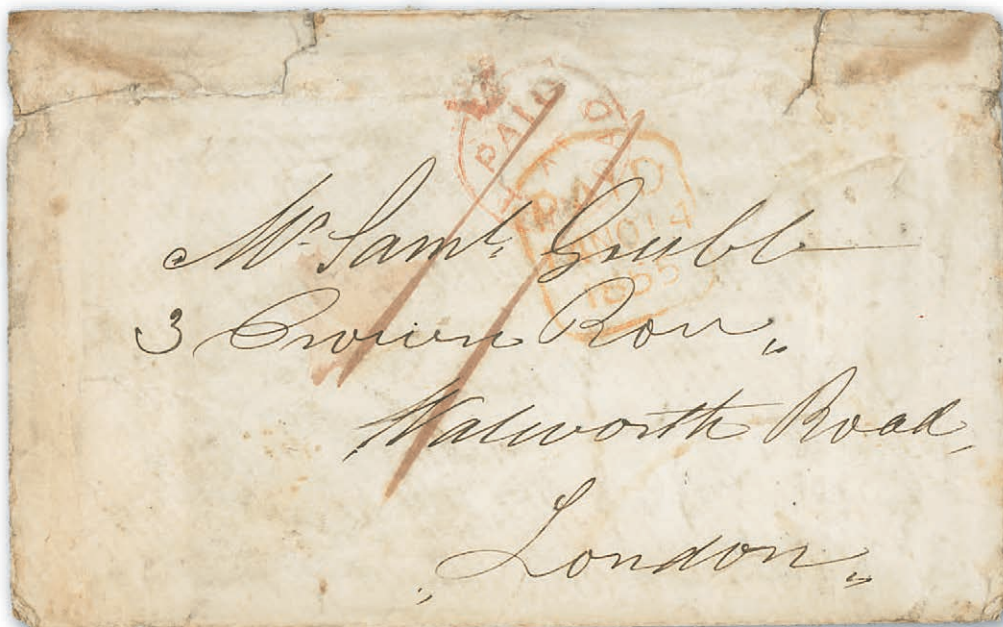 PAID
PAID
NO 14
1855
Mr. Saml. Grubb
3 Crown Row,
Walworth Road,
London,